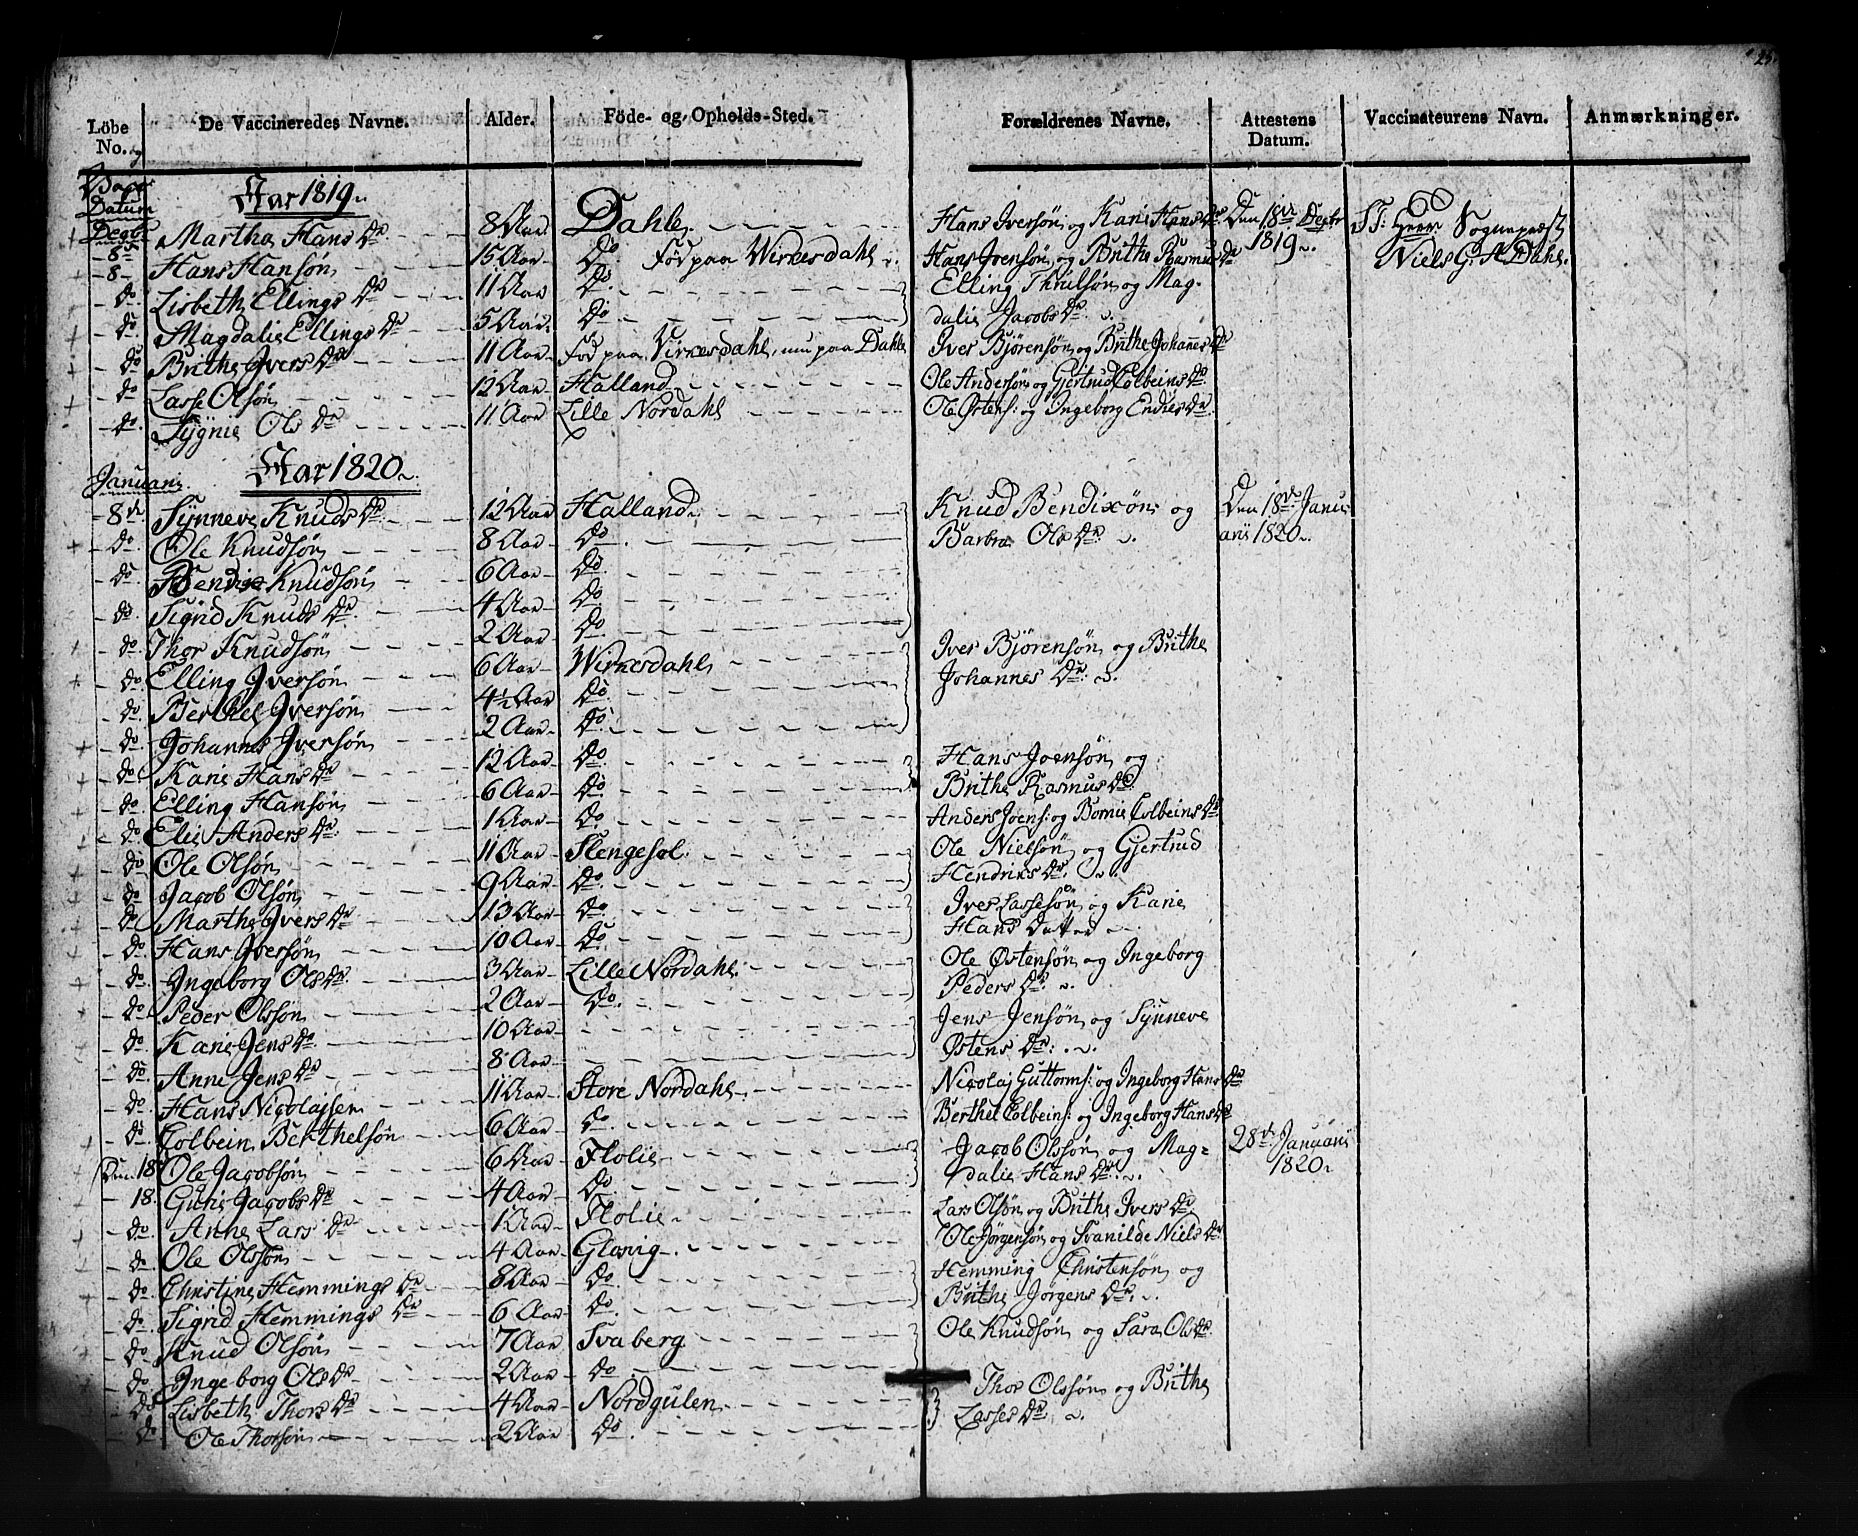 25.
Löbe No. og De Vaccineredes Navne. Alder. Föde- og Opholds-Sted. Forældrenes Navne. Attestens Datum. Vaccinateurens Navn. Anmærkninger.
Datum Aar 1819.
Decbr Martha Hans Dr 8 Aar Dahle. Hans Iversön og Kari Hans Dr Den 18de Decbr 1819. Niels G. A Dahl.
8 Hans Hansön 15 Aar Do. Föd paa Wirkesdahl. Hans Joensön og Brithe Rasmus Dr
do Lisbeth Ellings Dr 11 Aar Do. Elling Thrulsön og Mag-
do Magdalie Ellings Dr 5 Aar Do dalie Jacobs Dr
do Brithe Ivers Dr 11 Aar Föd paa Virkesdahl, nu paa Dahle Iver Björensön og Brithe Johannes Dr
do Lasse Olsön 12 Aar Halland Ole Andersön og Gjertrud Colbeins Dr
do. Sygnie Ols Dr 11 Aar Lille Nordahl Ole Östens: og Ingeborg Endres Dr.
Januarii Aar 1820
8de Synneve Knuds Dr. 12 Aar Halland. Knud Bendixön og Den 18de Janu
do Ole Knudsön 8 Aar do. Barbra Ols Dr. arii 1820.
do. Bendix Knudsön 6 Aar Do
do. Sigrid Knuds Dr. 4 Aar Do
do. Thor Knudsön 2 Aar Do. Iver Björensön og Brithe
do. Elling Iversön 6 Aar Wirkesdahl Johannes Dr.
do. Berthel Iversön 4½ Aar do.
do. Johannes Iversön 2 Aar do.
do Karie Hans Dr 12 Aar do. Hans Joensön og
do. Elling Hansön 6 Aar do. Brithe Rasmus Dr.
do Elie Anders Dr. 1 Aar do. Anders Joens: og Bornie Colbeins Dr
do Ole Olsön 11 Aar Slengesol. Ole Nielsön og Gjertrud
do. Jacob Olsön 9 Aar do. Hendriks Dr.
do Marthe Ivers Dr 13 Aar do. Iver Lassesön og Karie
do. Hans Iversön 10 Aar do Hans Datter
do. Ingeborg Ols Dr. 3 Aar Lille Nordahl. Ole Östensön og Ingeborg
do Peder Olsön 2 Aar do. Peders Dr.
do. Karie Jens Dr. 10 Aar Jens Jensön og Synneve
do. Anne Jens Dr 8 Aar Östens Dr.
do. Hans Nicolajsen 11 Aar Store Nordahl Nicolaj Guttorms: og Ingeborg Hans Dr
do. Colbein Berthelsön 6 Aar do. Berthel Colbeins: og Ingeborg Hans Dr
18 Ole Jacobsön 6 Aar Flolie Jacob Olsön og Mag= 28de Januarii
18. Gurie Jacobs Dr 4 Aar do. dalie Hans Dr. 1820.
do. Anne Lars Dr 1 Aar Flolie Lars Olsön og Brithe Ivers Dr
do. Ole Olsön 4 Aar Glavig Ole Jörgensön og Svanilde Niels Dr.
do. Christine Hemmings Dr 8 Aar do. Hemming Christensön og
do. Sigrid Hemmings Dr 6 Aar do. Brithe Jörgens Dr.
do. Knud Olsön 7 Aar Svaberg Ole Knudsön og Sara Ols Dr.
do. Ingeborg Ols Dr 2 Aar do
do Lisbeth Thors Dr 4 Aar Nordgulen Thor Olsön og Brithe
do Ole Thorsön 2 Aar do. Lasses Dr.